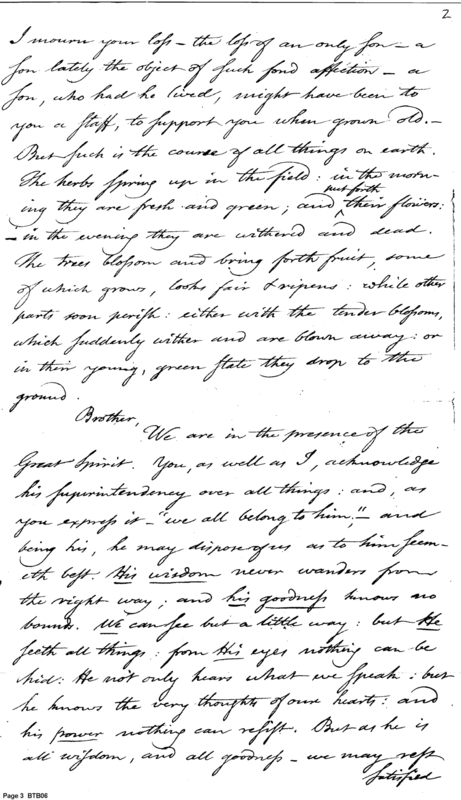 2
I mourn your loſs – the loſs of an only ſon – a
ſon lately the object of ſuch fond affection – a
ſon, who had he lived, might have been to
you a ſtaff, to ſupport you when grown old. –
But ſuch is the course of all things on earth.
The herbs ſpring up in the field: in the morn-
put forth
ing they are freſh and green; and ‸ their flowers:
– in the evening they are withered and dead.
The trees bloſsom and bring forth fruit, ſome
of which grows, looks fair & ripens: while other
parts ſoon periſh: either with the tender bloſsoms,
which ſuddenly wither and are blown away: or
in their young, green ſtate they drop to the
ground.
Brother,
We are in the presence of the
Great Spirit. You, as well as I, acknowledge
his ſuperintendency over all things: and, as
you expreſs it – "we all belong to him;" – and
being his, he may dispose of us as to him ſeem-
eth beſt. His wisdom never wanders from
the right way; and his goodneſs knows no
bounds. We can ſee but a little way: but He
ſeeth all things: from His eyes nothing can be
hid: He not only hears what we ſpeak: but
he knows the very thoughts of our hearts: and
his power nothing can reſiſt. But as he is
all wiſdom, and all goodneſs – we may reſt
ſatisfied
Page 3 BTB06